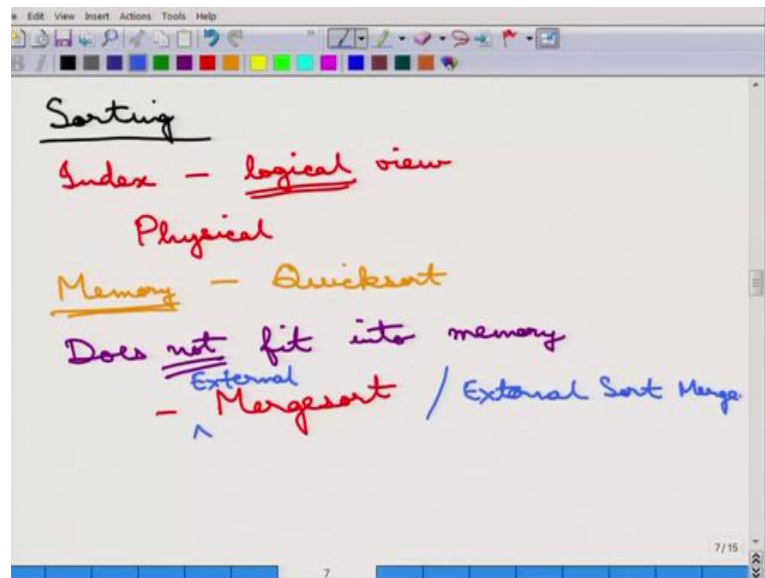 Edit View Insert Actions Tools Help
Sorting
Index - logical view
Physical
Memory - Quicksort
Does not fit into memory
External
- Mergesort / External Sort Merge
7/15
7